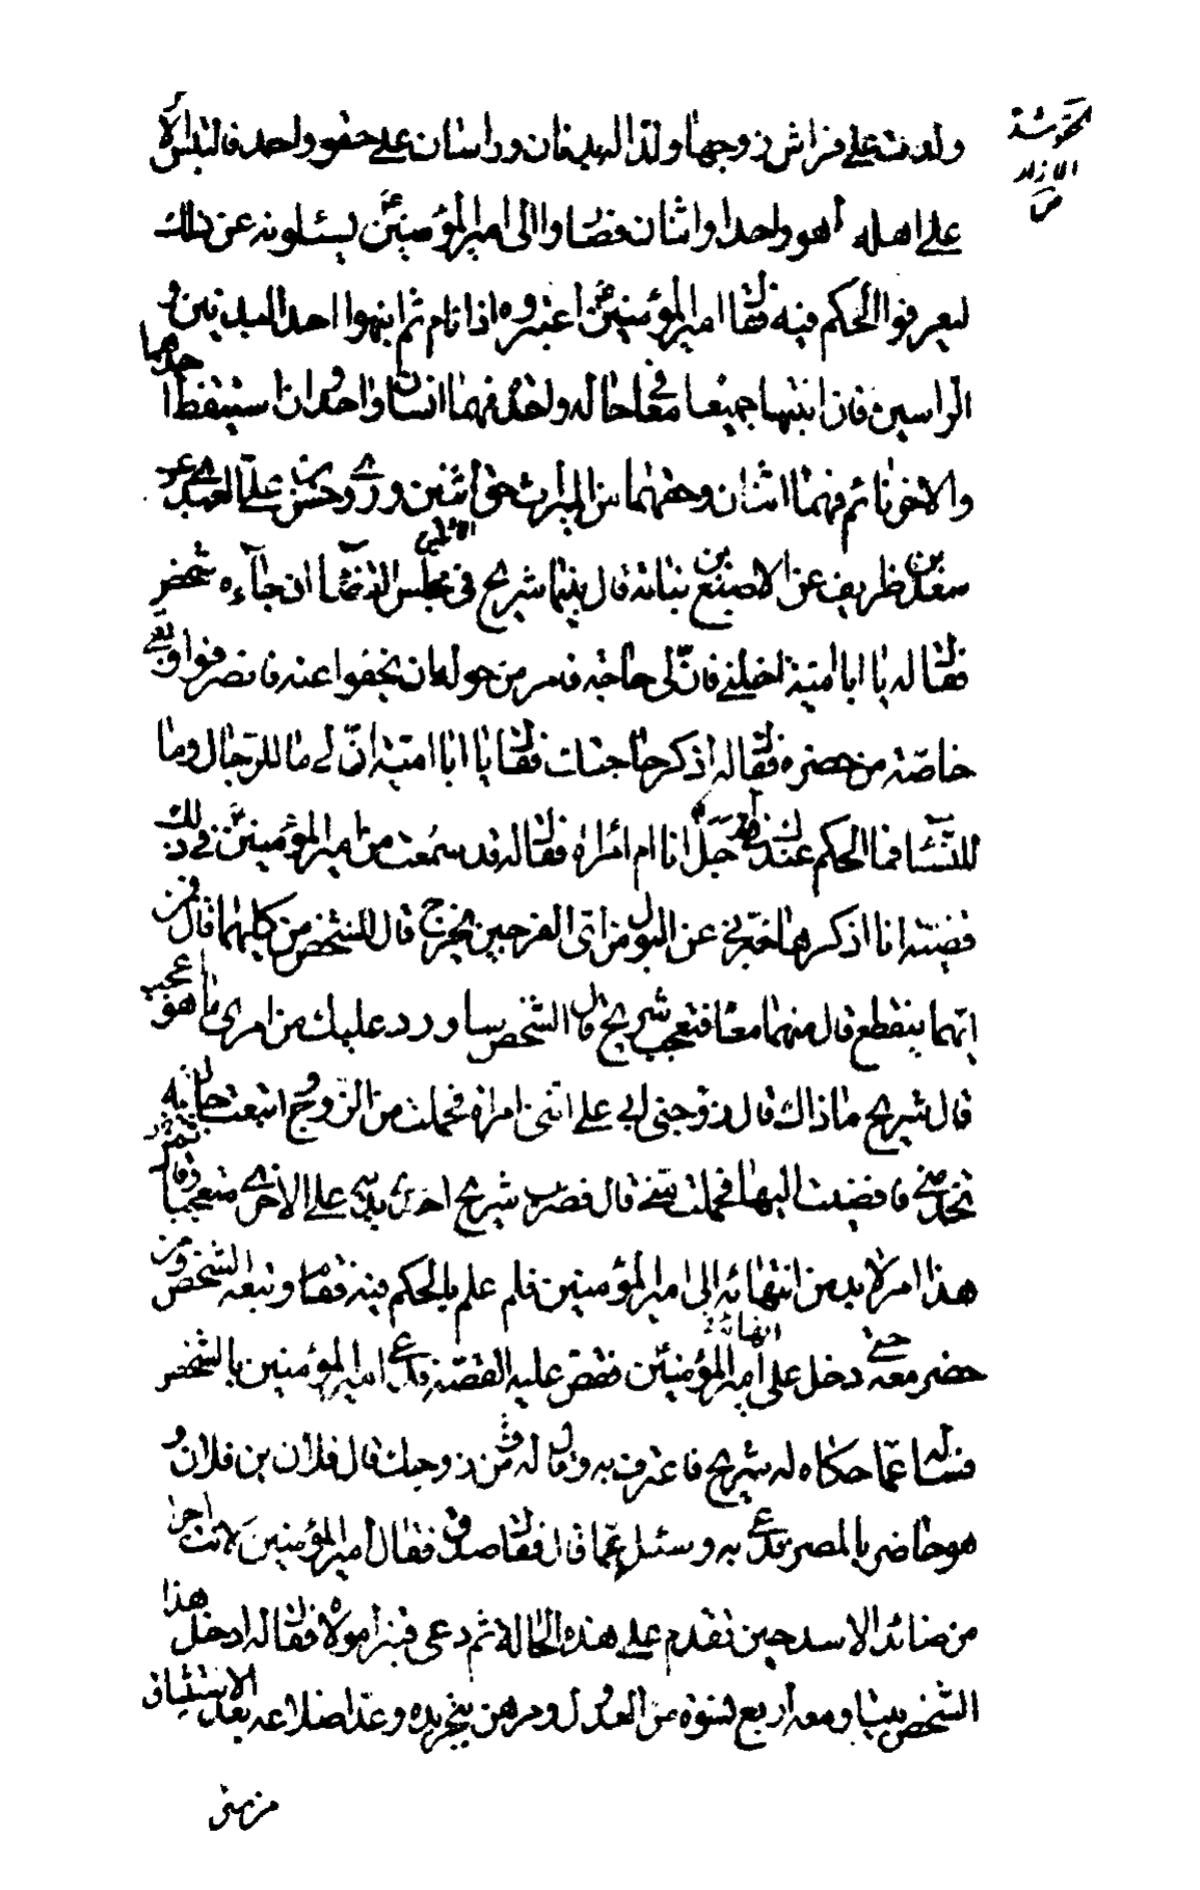 ولدت على فراش زوجها ولدا له بدنان وراسان على حقو واحد فالتبس الامر
على اهله أهو واحد او اثنان فصاروا الى امير المؤمنين ع يسئلونه عن ذلك
ليعرفوا الحكم فيه فقال امير المؤمنين ع اعتبروه اذا نام ثم انبهوا احد البدنين و
الراسين فان انتبها جميعا معا في حالة واحدة فهما انسان واحد وان استيقظ احدهما
والاخر نائم فهما اثنان وحقهما من الميراث حق اثنين وروى حسن بن على العبدى عن
سعد بن ظريف عن الاصبغ بن نباتة قال بينما شريح فى مجلس القضاء ان جاءه شخص
فقال له يا ابا امية اخلنى فان لى حاجة فامر من حوله ان يخفوا عنه فانصرفوا وبقى
خاصة من حضره فقال له اذكر حاجتك فقال يا ابا امية ان لى ما للرجال وما
للنساء فما الحكم عندك في أرجل انا ام امراة فقال له قد سمعت من امير المؤمنين ع فى ذلك
قضية انا اذكرها خبرنى عن البول من اى الفرجين يخرج قال الشخص من كليهما قال فمن
ايهما ينقطع قال منهما معا فتعجب شريح قال الشخص ساورد عليك من امرى ما هو عجب
قال شريح ما ذاك قال زوجنى ابى على اننى امراة فحملت من الزوج وابتعت جارية
تخدمنى فافضيت اليها فحملت منى قال فضرب شريح احدى يديه على الاخرى متعجبا وقال
هذا امر لا بد من انهائه الى امير المؤمنين فلم علم بالحكم فيه فقام وتبعه الشخص ومن
حضر معه حتى دخل على امير المؤمنين ع فقص عليه القصة فدعى امير المؤمنين بالشخص
فسأله عما حكاه له شريح فاعترف به وقال له فمن زوجك قال فلان بن فلان و
هو حاضر بالمصر فدعى به وسئل عما قال فقال صدق فقال امير المؤمنين لانت اجرا
من صائد الاسد حين تقدم على هذه الحالة ثم دعى قنبرا مولاه فقال له ادخل هذا
الشخص بيتا ومعه اربع نسوة من العدول ومرهن بتجريده وعد اضلاعه بعد الاستيثاق
من